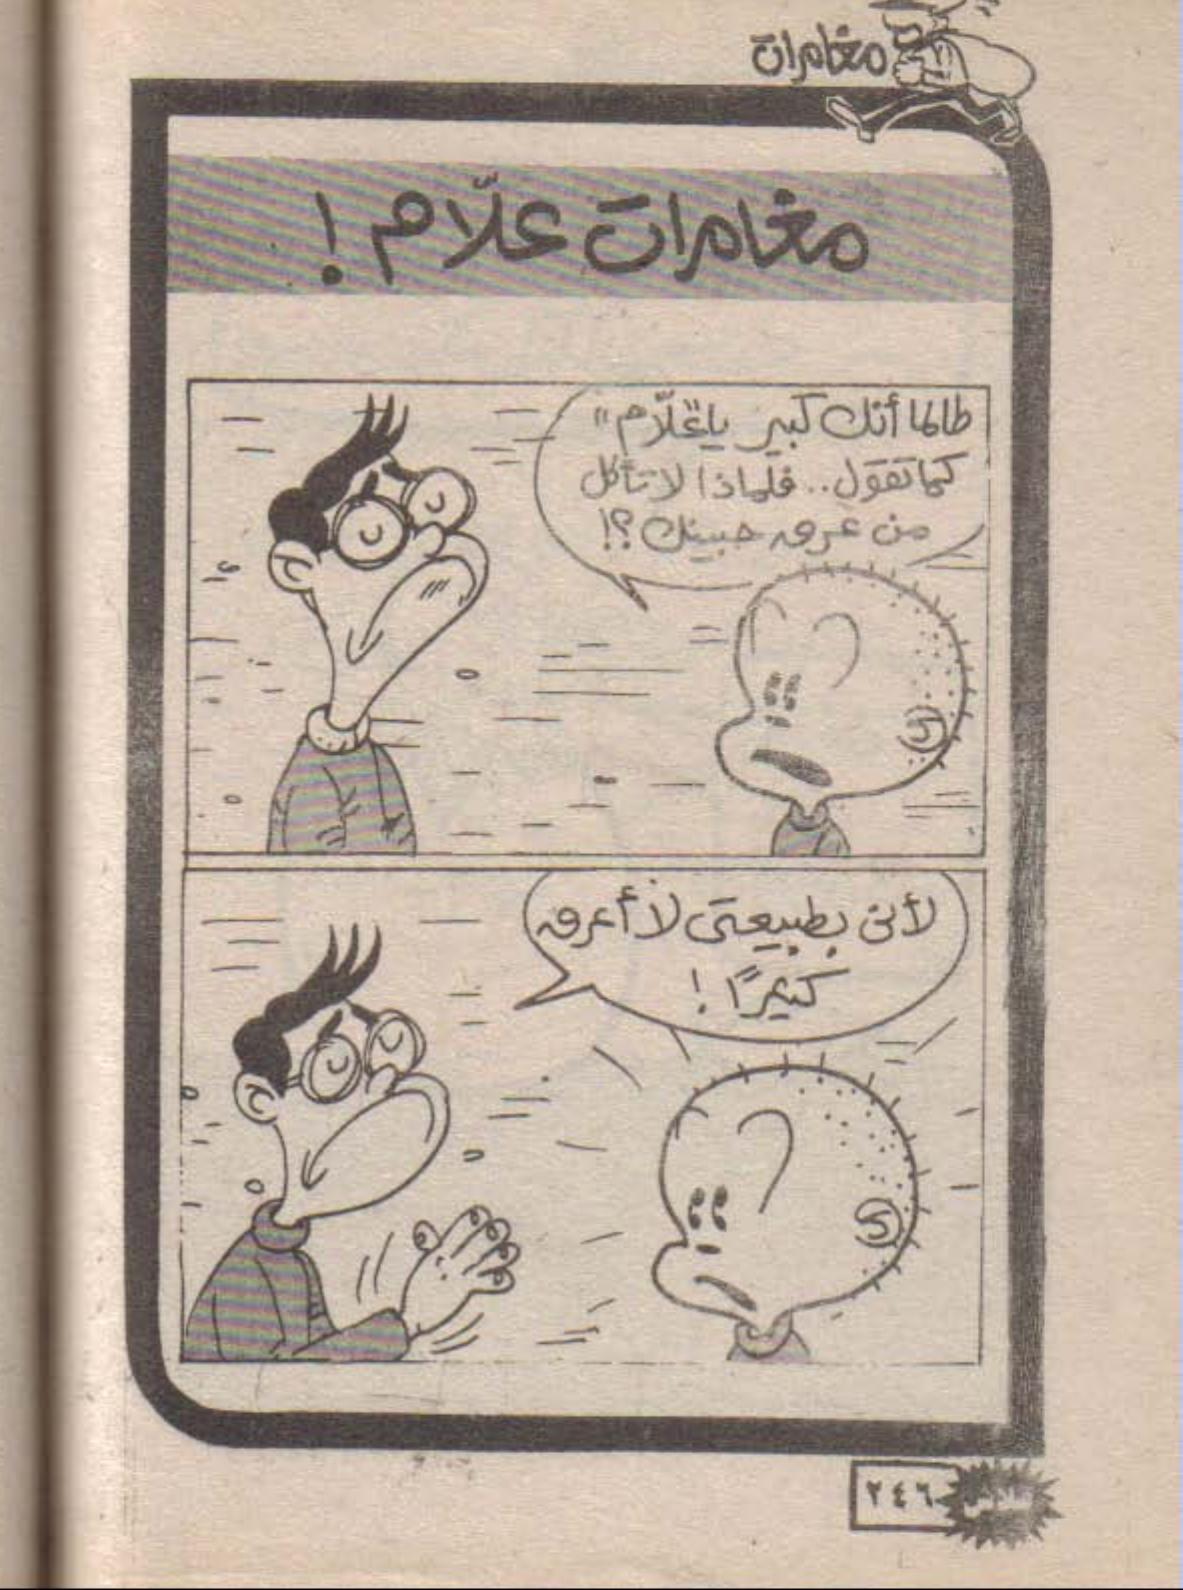 مغامرات
مغامرات علّام !
طالما أنك كبير يا "علّام"
كما تقول.. فلماذا لا تأكل
من عرق جبينك ؟!
لأنى بطبيعتى لا أعرق
كثيرًا !
٢٤٦